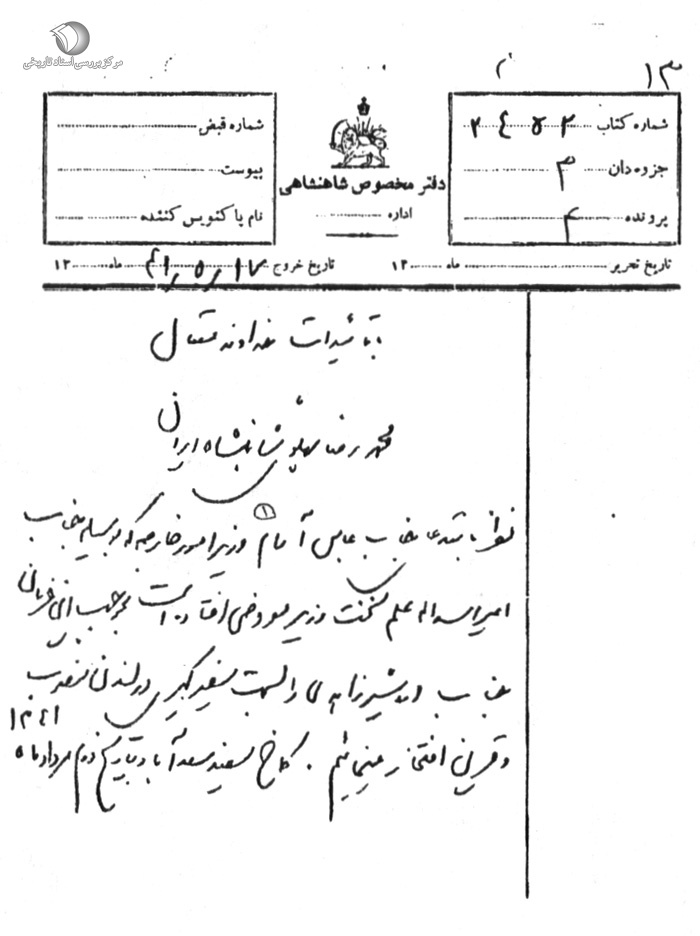 مرکز بررسی اسناد تاریخی
۱۳
شماره کتاب ۲۴۵۲
جزوه دان ۳
پرونده ۴
دفتر مخصوص شاهنشاهی
اداره
شماره قبض
پیوست
نام پاکنویس کننده
تاریخ تحریر ماه ۱۳
تاریخ خروج ۴۱٫۵٫۱۷ ماه ۱۳
با تأئیدات خداوند متعال
محمد رضا پهلوی شاهنشاه ایران
نظر باستدعای جناب عباس آرام ۱ وزیر امور خارجه که بوسیله جناب
امیر اسداله علم نخست وزیر بعرض افتاده است بموجب این فرمان
جناب اردشیر زاهدی را بسمت سفیر کبیری در لندن منصوب
و قرین افتخار مینمائیم . کاخ سفید سعدآباد بتاریخ دوم مرداد ماه
۱۳۴۱